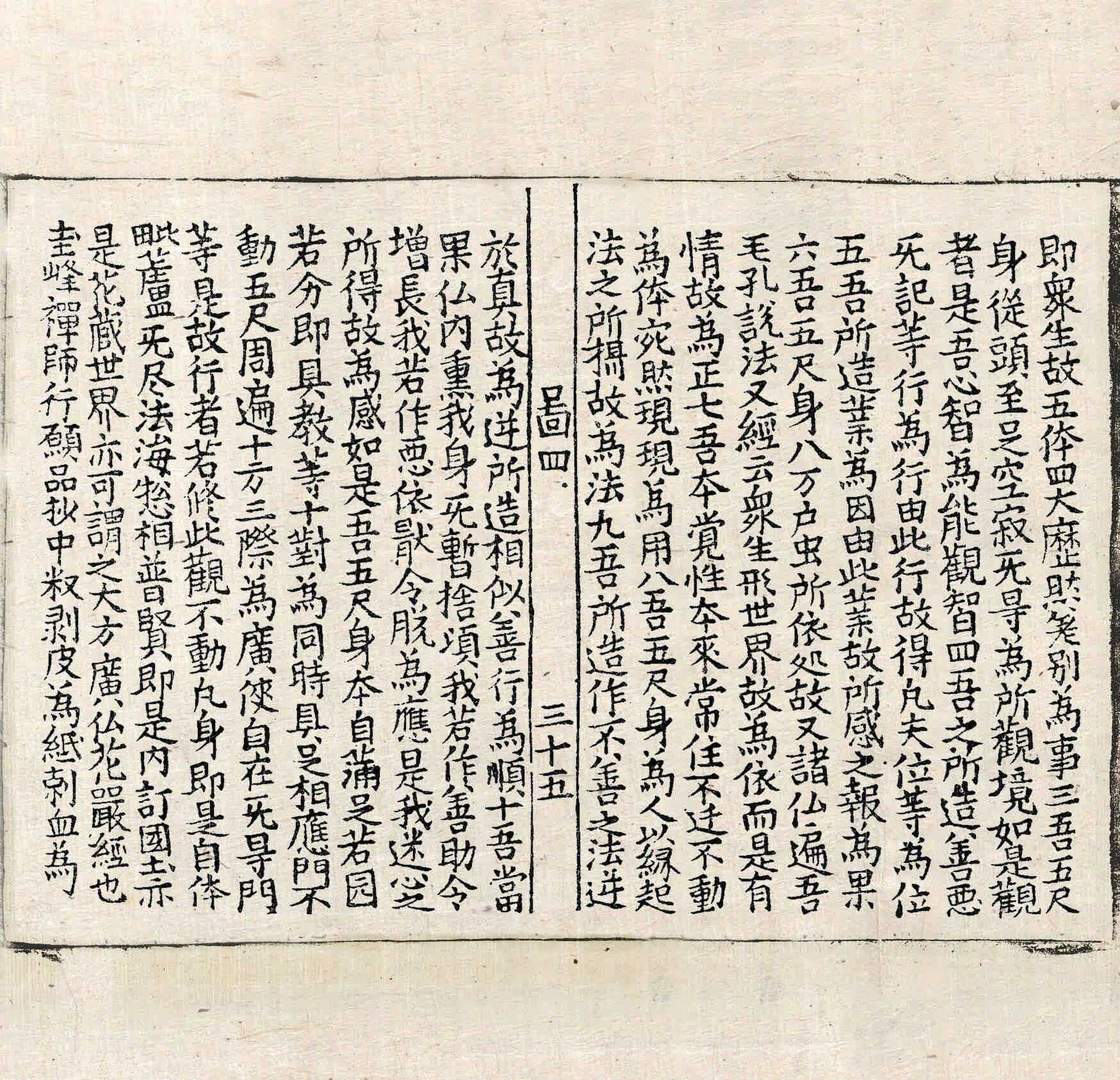 即衆生故五体四大歷然差别為事三吾五尺
身從頭至足空寂旡㝵為所觀境如是觀
者是吾心智為能觀智四吾之所造善惡
旡記等行為行由此行故得凡夫位等為位
五吾所造業為因由此業故所感之報為果
六吾五尺身八万户虫所依処故又諸仏遍吾
毛孔說法又經云衆生形世界故為依而是有
情故為正七吾夲覺性夲來常住不迁不動
為体宛然現現為用八吾五尺身為人以緣起
法之所攝故為法九吾所造作不善之法迸
啚四 三十五
於真故為迸所造相似善行為順十吾當
果仏内熏我身旡暫捨頃我若作善助令
增長我若作惡依獸令脱為應是我迷心之
所得故為感如是吾五尺身夲自蒲足若园
若分即具教等十對為同時具足相應門不
動五尺周遍十方三際為廣使自在旡㝵門
等是故行者若修此觀不動凡身即是自体
毗盧旡尽法海㹅相普賢即是内訂國土亦
是花藏世界亦可謂之大方廣仏花嚴經也
圭峰禪師行願品抄中釈剥皮為紙刺血為